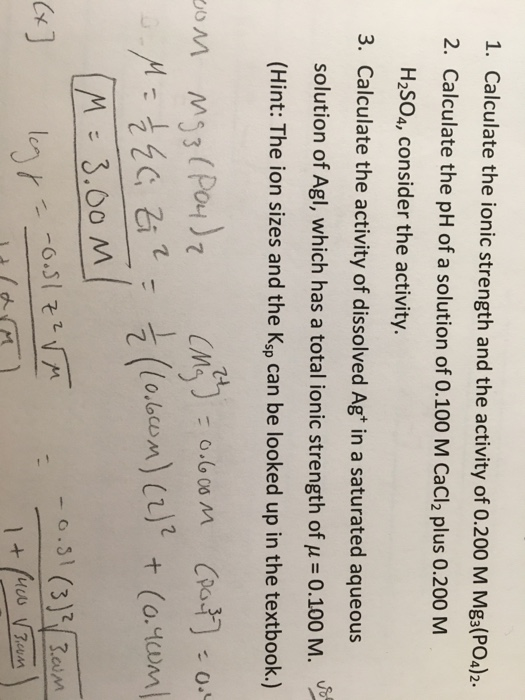 1. Calculate the ionic strength and the activity of 0.200 M Mg₃(PO₄)₂.
2. Calculate the pH of a solution of 0.100 M CaCl₂ plus 0.200 M
H₂SO₄, consider the activity.
3. Calculate the activity of dissolved Ag⁺ in a saturated aqueous
solution of AgI, which has a total ionic strength of μ = 0.100 M.
(Hint: The ion sizes and the Kₛₚ can be looked up in the textbook.)
00M Mg₃(PO₄)₂ (Mg²⁺) = 0.600M (PO₄³⁻) = 0.4
M = ½ Σ Cᵢ Zᵢ² = ½ ((0.600M)(2)² + (0.400M)
M = 3.00 M
(x] log γ = -0.51 z² √M = -0.51 (3)² √3.00M
1 + (α √M) 1 + (400 √3.00M)